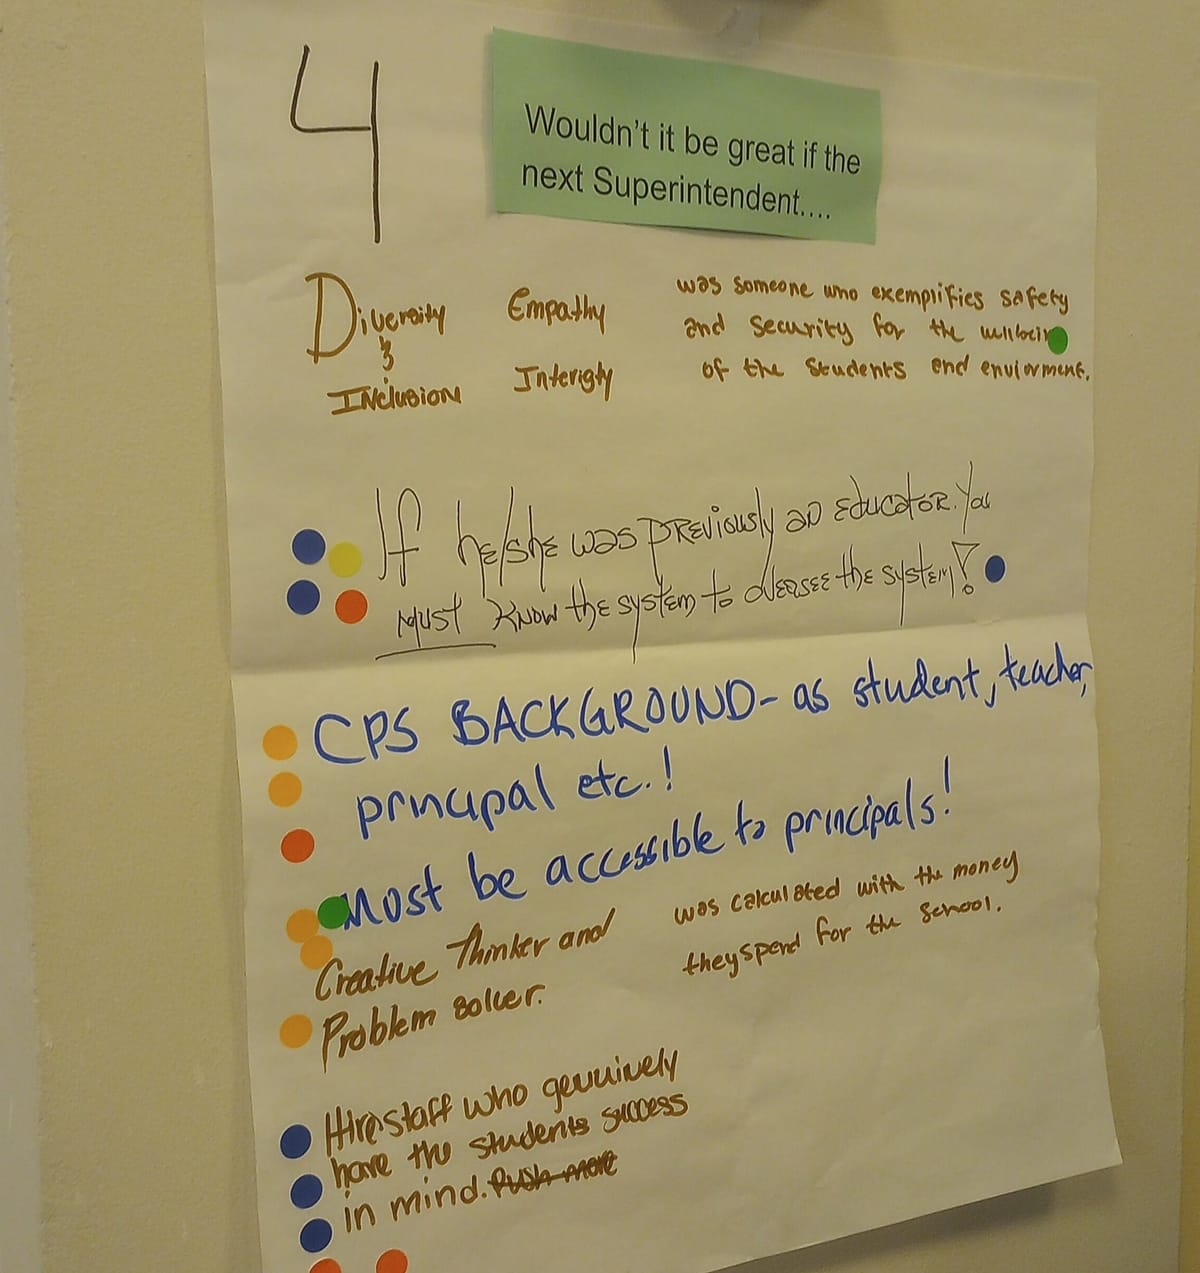 4
Wouldn't it be great if the
next Superintendent....
Diversity
&
INclusion
Empathy
Interigty
was someone who exemplifies safety
and security for the wellbein
of the students and enviorment.
If he/she was previously an educator. You
must know the system to oversee the system!
CPS BACKGROUND- as student, teacher,
principal etc.!
Most be accessible to principals!
Creative Thinker and
Problem solver.
was calculated with the money
they spend for the school.
Hire staff who genuinely
have the students success
in mind. Push more